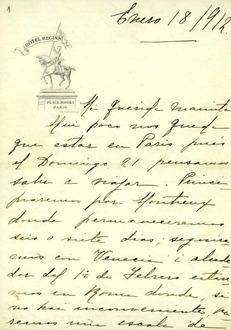 1
Enero 18/912.
HOTEL REGINA
PLACE RIVOLI
PARIS
Mi querida mamita
Mui poco nos queda
que estar en Paris pues
el Domingo 21 pensamos
salir a viajar. Primero
pasaremos por Montreux
donde permaneceremos
seis o siete dias; seguire-
mos con Venecia i alrede-
dor del 1º de Febrero estare-
mos en Roma donde, si
no hai inconveniente, ha-
remos una escala de